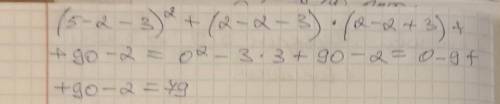 (5-2-3)² + (2-2-3) · (2-2+3) +
+90-2 = 0² - 3·3 + 90 - 2 = 0-9+
+90-2 = 79